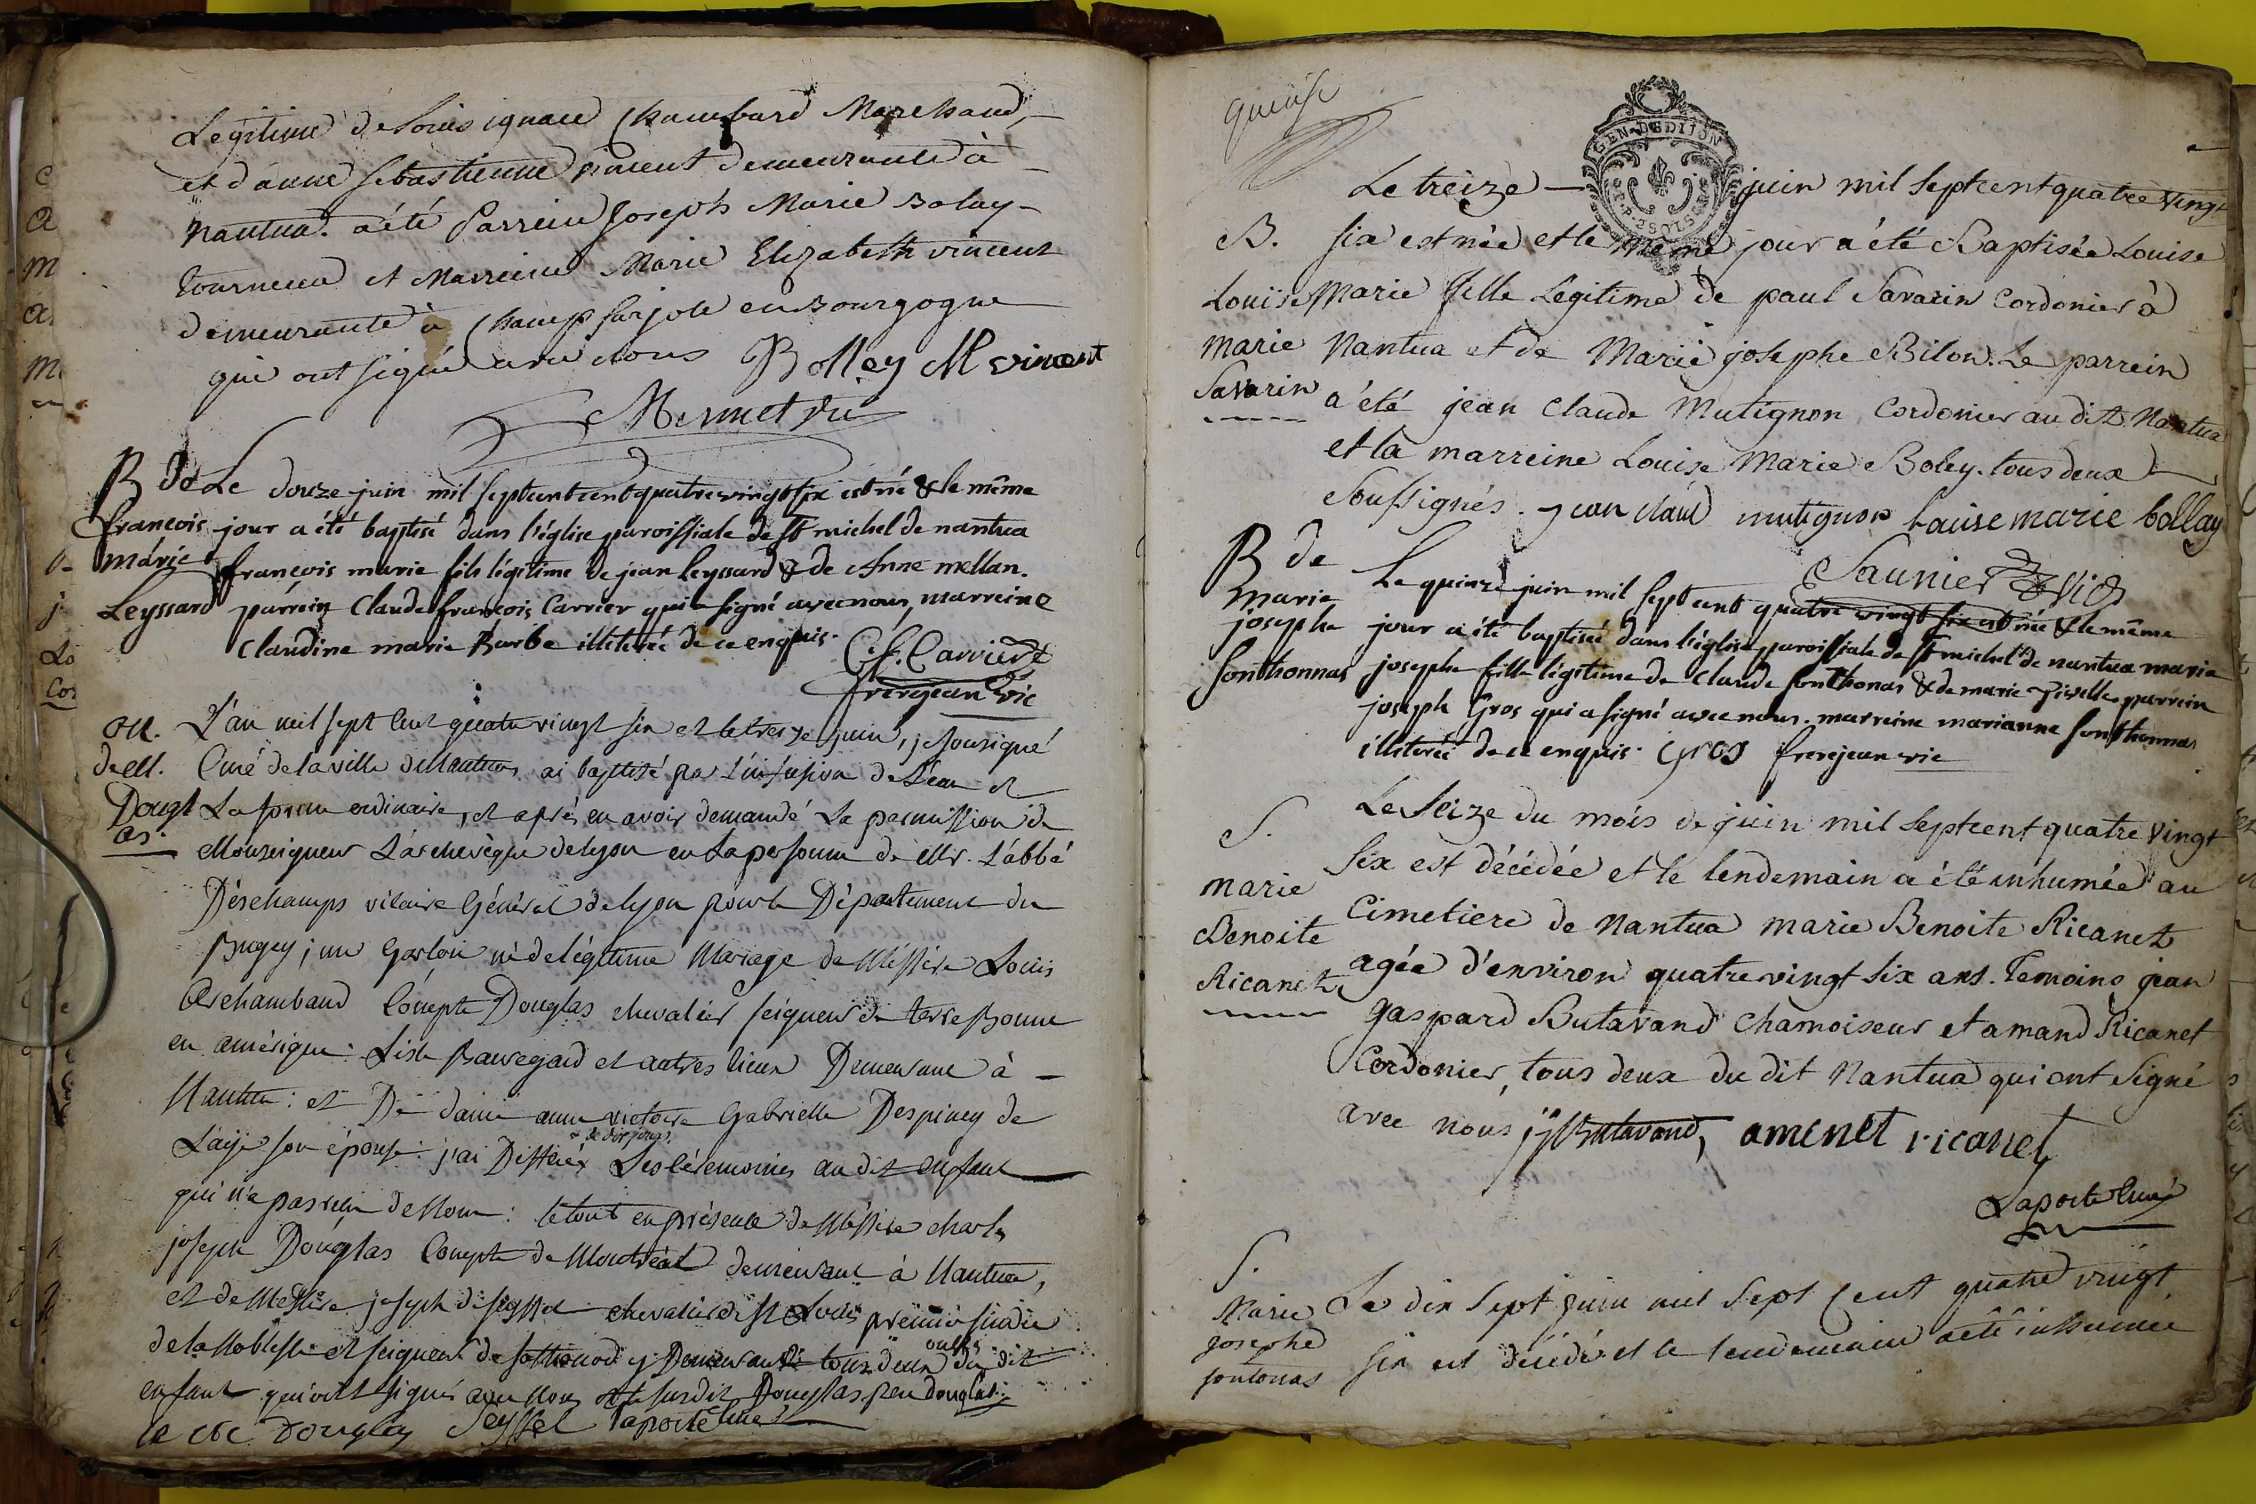 Legitime de Louis ignace Chambard Marchand
et d'anne sebastienne vincent demeurante à
Nantua. a été Parrein Joseph Marie Bolay
tourneur et Marreine Marie Elizabeth vincent
demeurante à Champ sur jole en Bourgogne
qui ont signé avec nous Bolley M vincent
Mermet vic
B de Le douze juin mil septcent quatrevingt six est né & le même
francois jour a été baptisé dans l'église paroissiale de st michel de nantua
marie francois marie fils légitime de jean leyssard & de Anne mellan.
Leyssard parrein Claude francois Carrier qui a signé avec nous, marreine
Claudine marie Barbe illiterée de ce enquis.
C. f. Carrier
frerejean vic
L'an mil sept cent quatre vingt six et le treize juin, je sousigné
de M. Curé de la ville de Nantua, ai baptisé par l'infusion de L'eau et
Dougl La forme ordinaire, et après en avoir demandé La permission de
as. Monseigneur L'archevèque de lyon en la personne de Mr. L'abbé
Déschamps vicaire Général de lyon pour le Département du
Bugey; un Garson né de légitime Mariage de Méssire Louis
Archambaud Compte Douglas chevalier seigneur de terre Bonne
en amérique: L'isle Bauregard et autres lieux Demeurant à
Nantua: et De dame anne victoire Gabrielle Despiney de
Laye son épouse: j'ai Differé Les cérémonies au dit enfant
qui n'a pas reçu de Nom: le tout en présence de Méssire charle
joseph Douglas Compte de Montréal demeurant à Nantua,
et de Messire joseph de seyssel chevalier de st Louis premier sindic
de la Noblesse et seigneur de sothonod y Demeurant tous deux oncles du dit
enfant qui ont signés avec Nous et le susdit Douglas pere douglas
le cte Douglas Seyssel laporte curé
queuse
Le treize juin mil septcent quatre vingt
B. six est née et le même jour a été Baptisée Louise
Louise Marie fille Légitime de paul Savarin Cordonier à
Marie Nantua et de Marie josephe Bilon. Le parrein
Savarin a été jean Claude Mutignon, Cordonier au dit Nantua
et la marreine Louise Marie Boley. tous deux
Soussignés. jean claud mutignon Louise marie bollay
Saunier vic
B de Le quinze juin mil septcent quatre vingt six est née & le même
marie jour a été baptisée dans l'église paroissiale de st michel de nantua marie
josephe josephe fille légitime de Claude sonthonas & de marie pivelle. parrein
sonthonnas joseph Gros qui a signé avec nous. marreine marianne sonthonnas
illiterée de ce enquis. Gros frerejean vic
S. Le Seize du mois de juin mil septcent quatre vingt
Six est décédée et le lendemain a été inhumée au
marie Cimetiere de Nantua marie Benoite Ricanet
Benoite agée d'environ quatrevingt six ans. Temoins jean
Ricanet gaspard Butavand Chamoiseur et amand Ricanet
Cordonier, tous deux du dit Nantua qui ont signé
avec nous jg Butavand, amenet ricanet
Laporte curé
S.
Marie Le dix Sept juin mil Sept Cent quatre vingt
josephe six est décédé et le lendemain a été inhumée
sontonas
GEN. DE DIJON